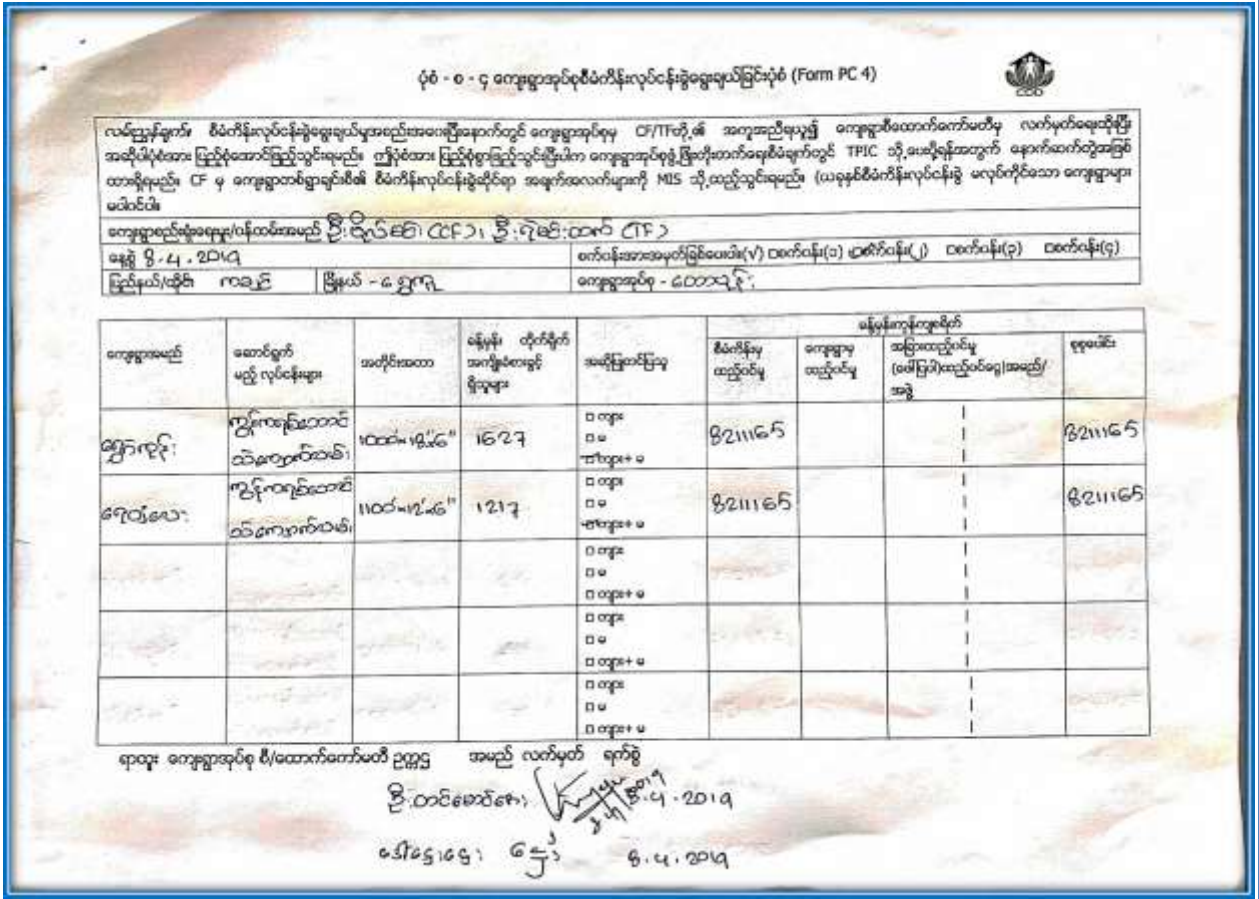 ပုံစံ - စ - ၄ ကျေးရွာအုပ်စုစီမံကိန်းလုပ်ငန်းခွဲရွေးချယ်ခြင်းပုံစံ (Form PC 4)
CDD
လမ်းညွှန်ချက်။ စီမံကိန်းလုပ်ငန်းခွဲရွေးချယ်မှုအစည်းအဝေးပြီးနောက်တွင် ကျေးရွာအုပ်စုမှ CF/TFတို့၏ အကူအညီရယူ၍ ကျေးရွာစီထောက်ကော်မတီမှ လက်မှတ်ရေးထိုးပြီး
အဆိုပါပုံစံအား ပြည့်စုံအောင်ဖြည့်သွင်းရမည်။ ဤပုံစံအား ပြည့်စုံစွာဖြည့်သွင်းပြီးပါက ကျေးရွာအုပ်စုဖွံ့ဖြိုးတက်ရေးစီမံချက်တွင် TPIC သို့ပေးပို့ရန်အတွက် နောက်ဆက်တွဲအဖြစ်
ထားရှိရမည်။ CF မှ ကျေးရွာတစ်ရွာချင်းစီ၏ စီမံကိန်းလုပ်ငန်းခွဲဆိုင်ရာ အချက်အလက်များကို MIS သို့ထည့်သွင်းရမည်။ (ယခုနှစ်စီမံကိန်းလုပ်ငန်းခွဲ မလုပ်ကိုင်သော ကျေးရွာများ
မပါဝင်ပါ။
ကျေးရွာစည်းရုံးရေးမှူး/ဝန်ထမ်းအမည် (CF)၊ (TF)
နေ့စွဲ 8.4.2019 စက်ဝန်းအားအမှတ်ခြစ်ပေးပါ။(√) □စက်ဝန်း(၁) □စက်ဝန်း(၂) □စက်ဝန်း(၃) □စက်ဝန်း(၄)
ပြည်နယ်/တိုင်း ကချင် မြို့နယ် - ရွှေကူ ကျေးရွာအုပ်စု -
ခန့်မှန်းကုန်ကျစရိတ်
ကျေးရွာအမည် ဆောင်ရွက်မည့် လုပ်ငန်းများ အတိုင်းအတာ ခန့်မှန်း တိုက်ရိုက်အကျိုးခံစားခွင့်ရှိသူများ အဆိုပြုတင်ပြသူ စီမံကိန်းမှထည့်ဝင်မှု ကျေးရွာမှထည့်ဝင်မှု အခြားထည့်ဝင်မှု(ဖော်ပြပါ)ထည့်ဝင်ငွေ/အမည်/အဖွဲ့ စုစုပေါင်း
ကွန်ကရစ်ဘောင် 1627 □ ကျား □ မ □ ကျား+ မ 8211165 8211165
သဲကျောက်လမ်း
ရေတွံလေး ကွန်ကရစ်ဘောင် 1217 □ ကျား □ မ □ ကျား+ မ 8211165 8211165
သဲကျောက်လမ်း
□ ကျား □ မ □ ကျား+ မ
□ ကျား □ မ □ ကျား+ မ
□ ကျား □ မ □ ကျား+ မ
ရာထူး ကျေးရွာအုပ်စု စီ/ထောက်ကော်မတီ ဥက္ကဌ အမည် လက်မှတ် ရက်စွဲ
8.4.2019
ဒေါ်ဌေးဌေး 8.4.2019